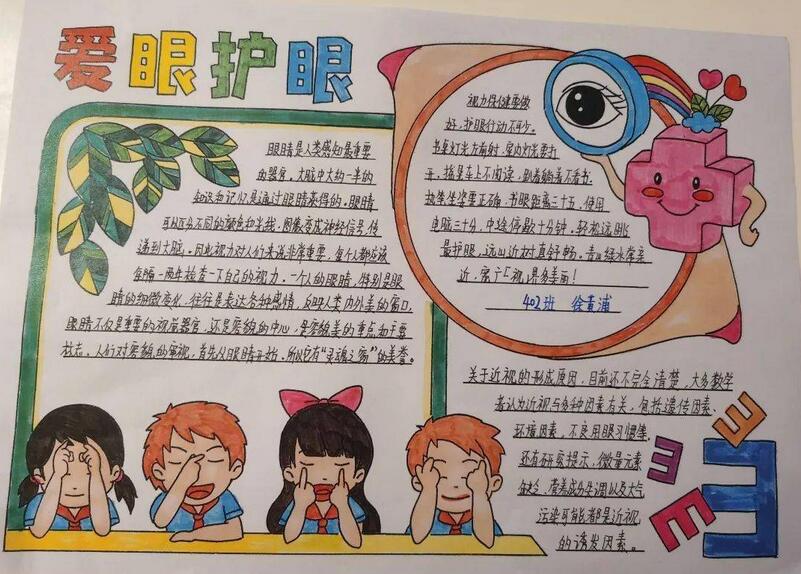 爱眼护眼
眼睛是人类感知最重要
的器官。大脑中大约一半的
知识和记忆是通过眼睛获得的。眼睛
可以区分不同的颜色和光线。图像变成神经信号，传
递到大脑。因此视力对人们来说非常重要，每个人都应该
每隔一两年检查一下自己的视力。一个人的眼睛，特别是眼
睛的细微变化，往往是表达各种感情，反映人类内外美的窗口，
眼睛不仅是重要的视觉器官，还是容貌的中心，是容貌美的重点和主要
标志。人们对容貌的审视，首先从眼睛开始。所以它有“灵魂之窗”的美誉。
视力保健要做
好，护眼行动不可少。
书桌灯光左前射，室内灯洗要打
开。摇晃车上不阅读，别着躺着不看书。
执笔坐姿要正确，书眼距离三十五。使用
电脑三十分，中途停歇十分钟。轻松远眺
最护眼，远山近树真舒畅。青山绿水常亲
近，宽广视界多美丽！
402班 徐黄浦
关于近视的形成原因，目前还不完全清楚，大多数学
者认为近视与多种因素有关，包括遗传因素、
环境因素、不良用眼习惯等。
还有研究提示，微量元素
、营养成分失调以及大气
污染可能都是近视
的诱发因素。